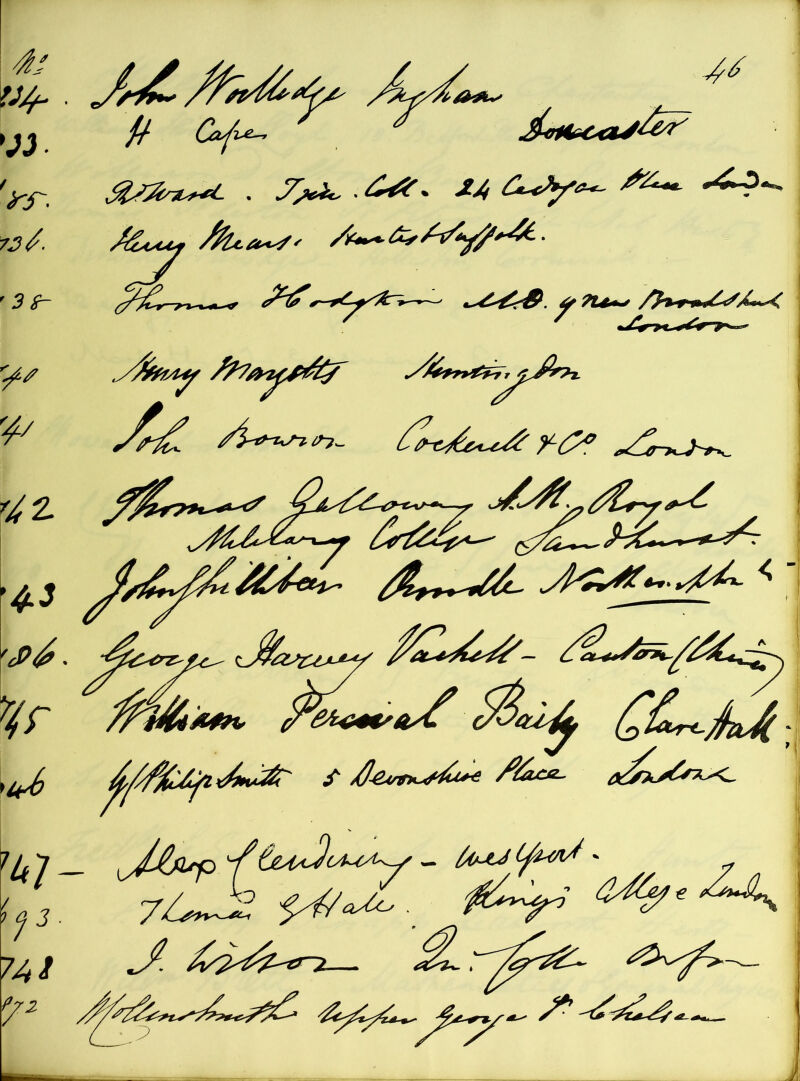 No. 46
234. John Woolledge Ingham
33. H Cape Doncaster
85. Ward. Trin. Coll. 24 Cadogan Place London
736. Henry Mears, Suffolk.
38 Thomas Hodgkin M.D. 9 New Broad Street
London
40 Henry Margetts Huntingdon
41 John Bowron Cockerell & Co. London
742 Thomas Galloway A.M. Royal
Military College Sandhurst.
43 John Shillibeer Oundle
86. George Harvey Vachell - Canton (China)
745 William Percival Baily Clare Hall;
746 Philip Smith 5 Devonshire Place London
747 - Alexr Clendining - Westport.
693. Thomas G Hale. King's College London
748 J. Wilson Qu: Coll.
872 Upper George St. Chelsea